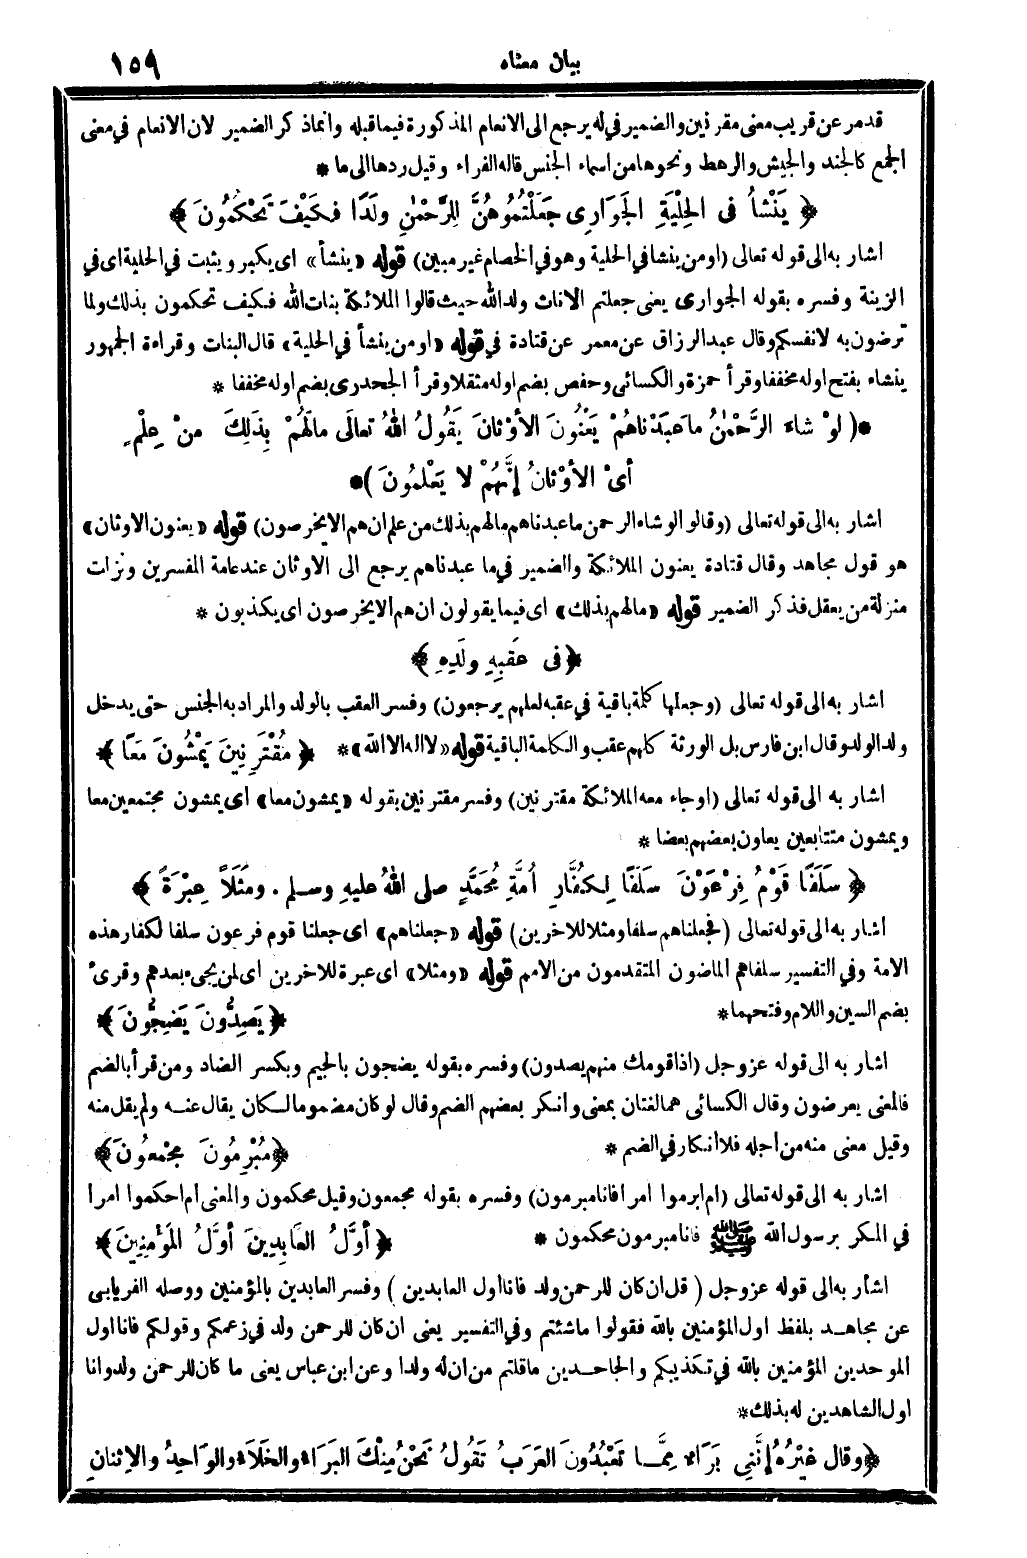 بيان معناه ١٥٩
قد مر عن قريب معنى مقرنين والضمير في له يرجع الى الانعام المذكورة فيما قبله وانما ذكر الضمير لان الانعام في معنى
الجمع كالجند والجيش والرهط ونحوها من اسماء الجنس قاله الفراء وقيل ردها الى ما *
﴿ يَنْشَأُ فِى الحِلْيَةِ الجَوَارِى جَعَلْتُمُوهُنَّ لِلرَّحْمٰنِ ولَدًا فَكَيْفَ تَحْكُمُونَ ﴾
اشار به الى قوله تعالى (او من ينشا في الحلية وهو في الخصام غير مبين) قوله «ينشأ» اى يكبر ويثبت في الحلية اى في
الزينة وفسره بقوله الجوارى يعنى جعلتم الاناث ولد الله حيث قالوا الملائكة بنات الله فكيف تحكمون بذلك ولما
ترضون به لانفسكم وقال عبد الرزاق عن معمر عن قتادة في قوله «او من ينشأ في الحلية» قال البنات وقراءة الجمهور
ينشاء بفتح اوله مخففا وقرأ حمزة والكسائى وحفص بضم اوله مثقلا وقرأ الجحدرى بضم اوله مخففا *
*( لوْ شاءَ الرَّحْمٰنُ ما عبَدْناهُمْ يَعْنُونَ الأوْثانَ يَقُولُ اللهُ تعالَى مالَهُمْ بِذَلِكَ منْ عِلْمٍ
أىْ الأوْثانُ إنَّهُمْ لا يَعْلمُونَ )*
اشار به الى قوله تعالى (وقالوا لو شاء الرحمن ما عبدناهم مالهم بذلك من علم ان هم الا يخرصون) قوله «يعنون الاوثان»
هو قول مجاهد وقال قتادة يعنون الملائكة والضمير في ما عبدناهم يرجع الى الاوثان عند عامة المفسرين ونزلت
منزلة من يعقل فذكر الضمير قوله «مالهم بذلك» اى فيما يقولون ان هم الا يخرصون اى يكذبون *
﴿ فى عَقِبِهِ ولَدِهِ ﴾
اشار به الى قوله تعالى (وجعلها كلمة باقية في عقبه لعلهم يرجعون) وفسر العقب بالولد والمراد به الجنس حتى يدخل
ولد الولد وقال ابن فارس بل الورثة كلهم عقب والكلمة الباقية قوله «لا اله الا الله» * ﴿ مُقْتَرِنِينَ يَمْشُونَ مَعًا ﴾
اشار به الى قوله تعالى (او جاء معه الملائكة مقترنين) وفسر مقترنين بقوله «يمشون معا» اى يمشون مجتمعين معا
ويمشون متتابعين يعاون بعضهم بعضا *
﴿ سَلَفًا قَوْمُ فِرْعَوْنَ سَلَفًا لِكُفَّارِ أُمَّةِ مُحَمَّدٍ صلى اللهُ عليهِ وسلم . ومَثَلاً عِبْرَةً ﴾
اشار به الى قوله تعالى (فجعلناهم سلفا ومثلا للاخرين) قوله «جعلناهم» اى جعلنا قوم فرعون سلفا لكفار هذه
الامة وفي التفسير سلفاهم الماضون المتقدمون من الامم قوله «ومثلا» اى عبرة للاخرين اى لمن يجىء بعدهم وقرىء
بضم السين واللام وفتحهما * ﴿ يَصِدُّونَ يَضِجُّونَ ﴾
اشار به الى قوله عز وجل (اذا قومك منهم يصدون) وفسره بقوله يضجون بالجيم وبكسر الضاد ومن قرأ بالضم
فالمعنى يعرضون وقال الكسائى هما لغتان بمعنى وانكر بعضهم الضم وقال لو كان مضموما لكان يقال عنه ولم يقل منه
وقيل معنى منه من أجله فلا انكار في الضم * ﴿ مُبْرِمُونَ مُجْمِعُونَ ﴾
اشار به الى قوله تعالى (ام ابرموا امرا فانا مبرمون) وفسره بقوله مجمعون وقيل محكمون والمعنى أم احكموا امرا
في المكر برسول الله ﷺ فانا مبرمون محكمون * ﴿ أوَّلُ العَابِدِينَ أوَّلُ المُؤْمِنِينَ ﴾
اشار به الى قوله عز وجل ( قل ان كان للرحمن ولد فانا أول العابدين ) وفسر العابدين بالمؤمنين ووصله الفريابى
عن مجاهد بلفظ اول المؤمنين بالله فقولوا ما شئتم وفي التفسير يعنى ان كان للرحمن ولد في زعمكم وقولكم فانا اول
الموحدين المؤمنين بالله في تكذيبكم والجاحدين ما قلتم من ان له ولدا وعن ابن عباس يعنى ما كان للرحمن ولد وانا
اول الشاهدين له بذلك *
﴿ وقال غيْرُهُ إنَّنِى بَرَاءٌ مِمَّا تَعْبُدُونَ العَرَبُ تَقُولُ نَحْنُ مِنْكَ البَرَاءُ والخَلَاءُ والوَاحِدُ والاِثنانِ